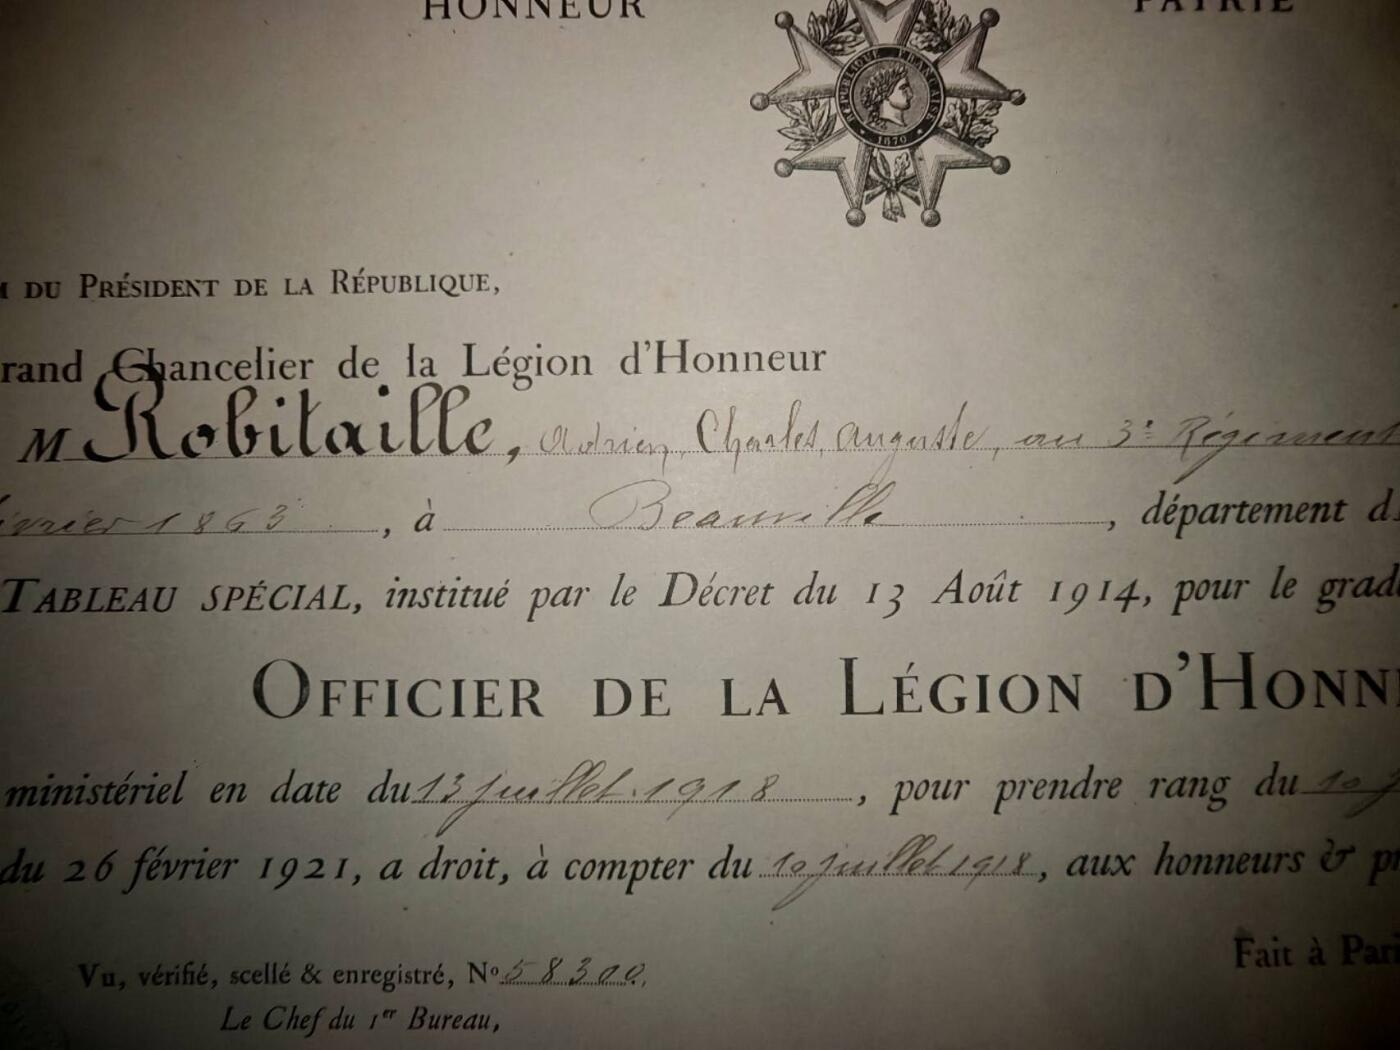 HONNEUR PATRIE
RÉPUBLIQUE FRANÇAISE
1870
M DU PRÉSIDENT DE LA RÉPUBLIQUE,
rand Chancelier de la Légion d'Honneur
M Robitaille, Adrien, Charles, Auguste, au 3e Régiment
évrier 1863, à Beauville, département d
TABLEAU SPÉCIAL, institué par le Décret du 13 Août 1914, pour le grade
OFFICIER DE LA LÉGION D'HONNE
ministériel en date du 13 juillet 1918, pour prendre rang du 10 j
du 26 février 1921, a droit, à compter du 10 juillet 1918, aux honneurs & pr
Fait à Pari
Vu, vérifié, scellé & enregistré, No 58300.
Le Chef du 1er Bureau,